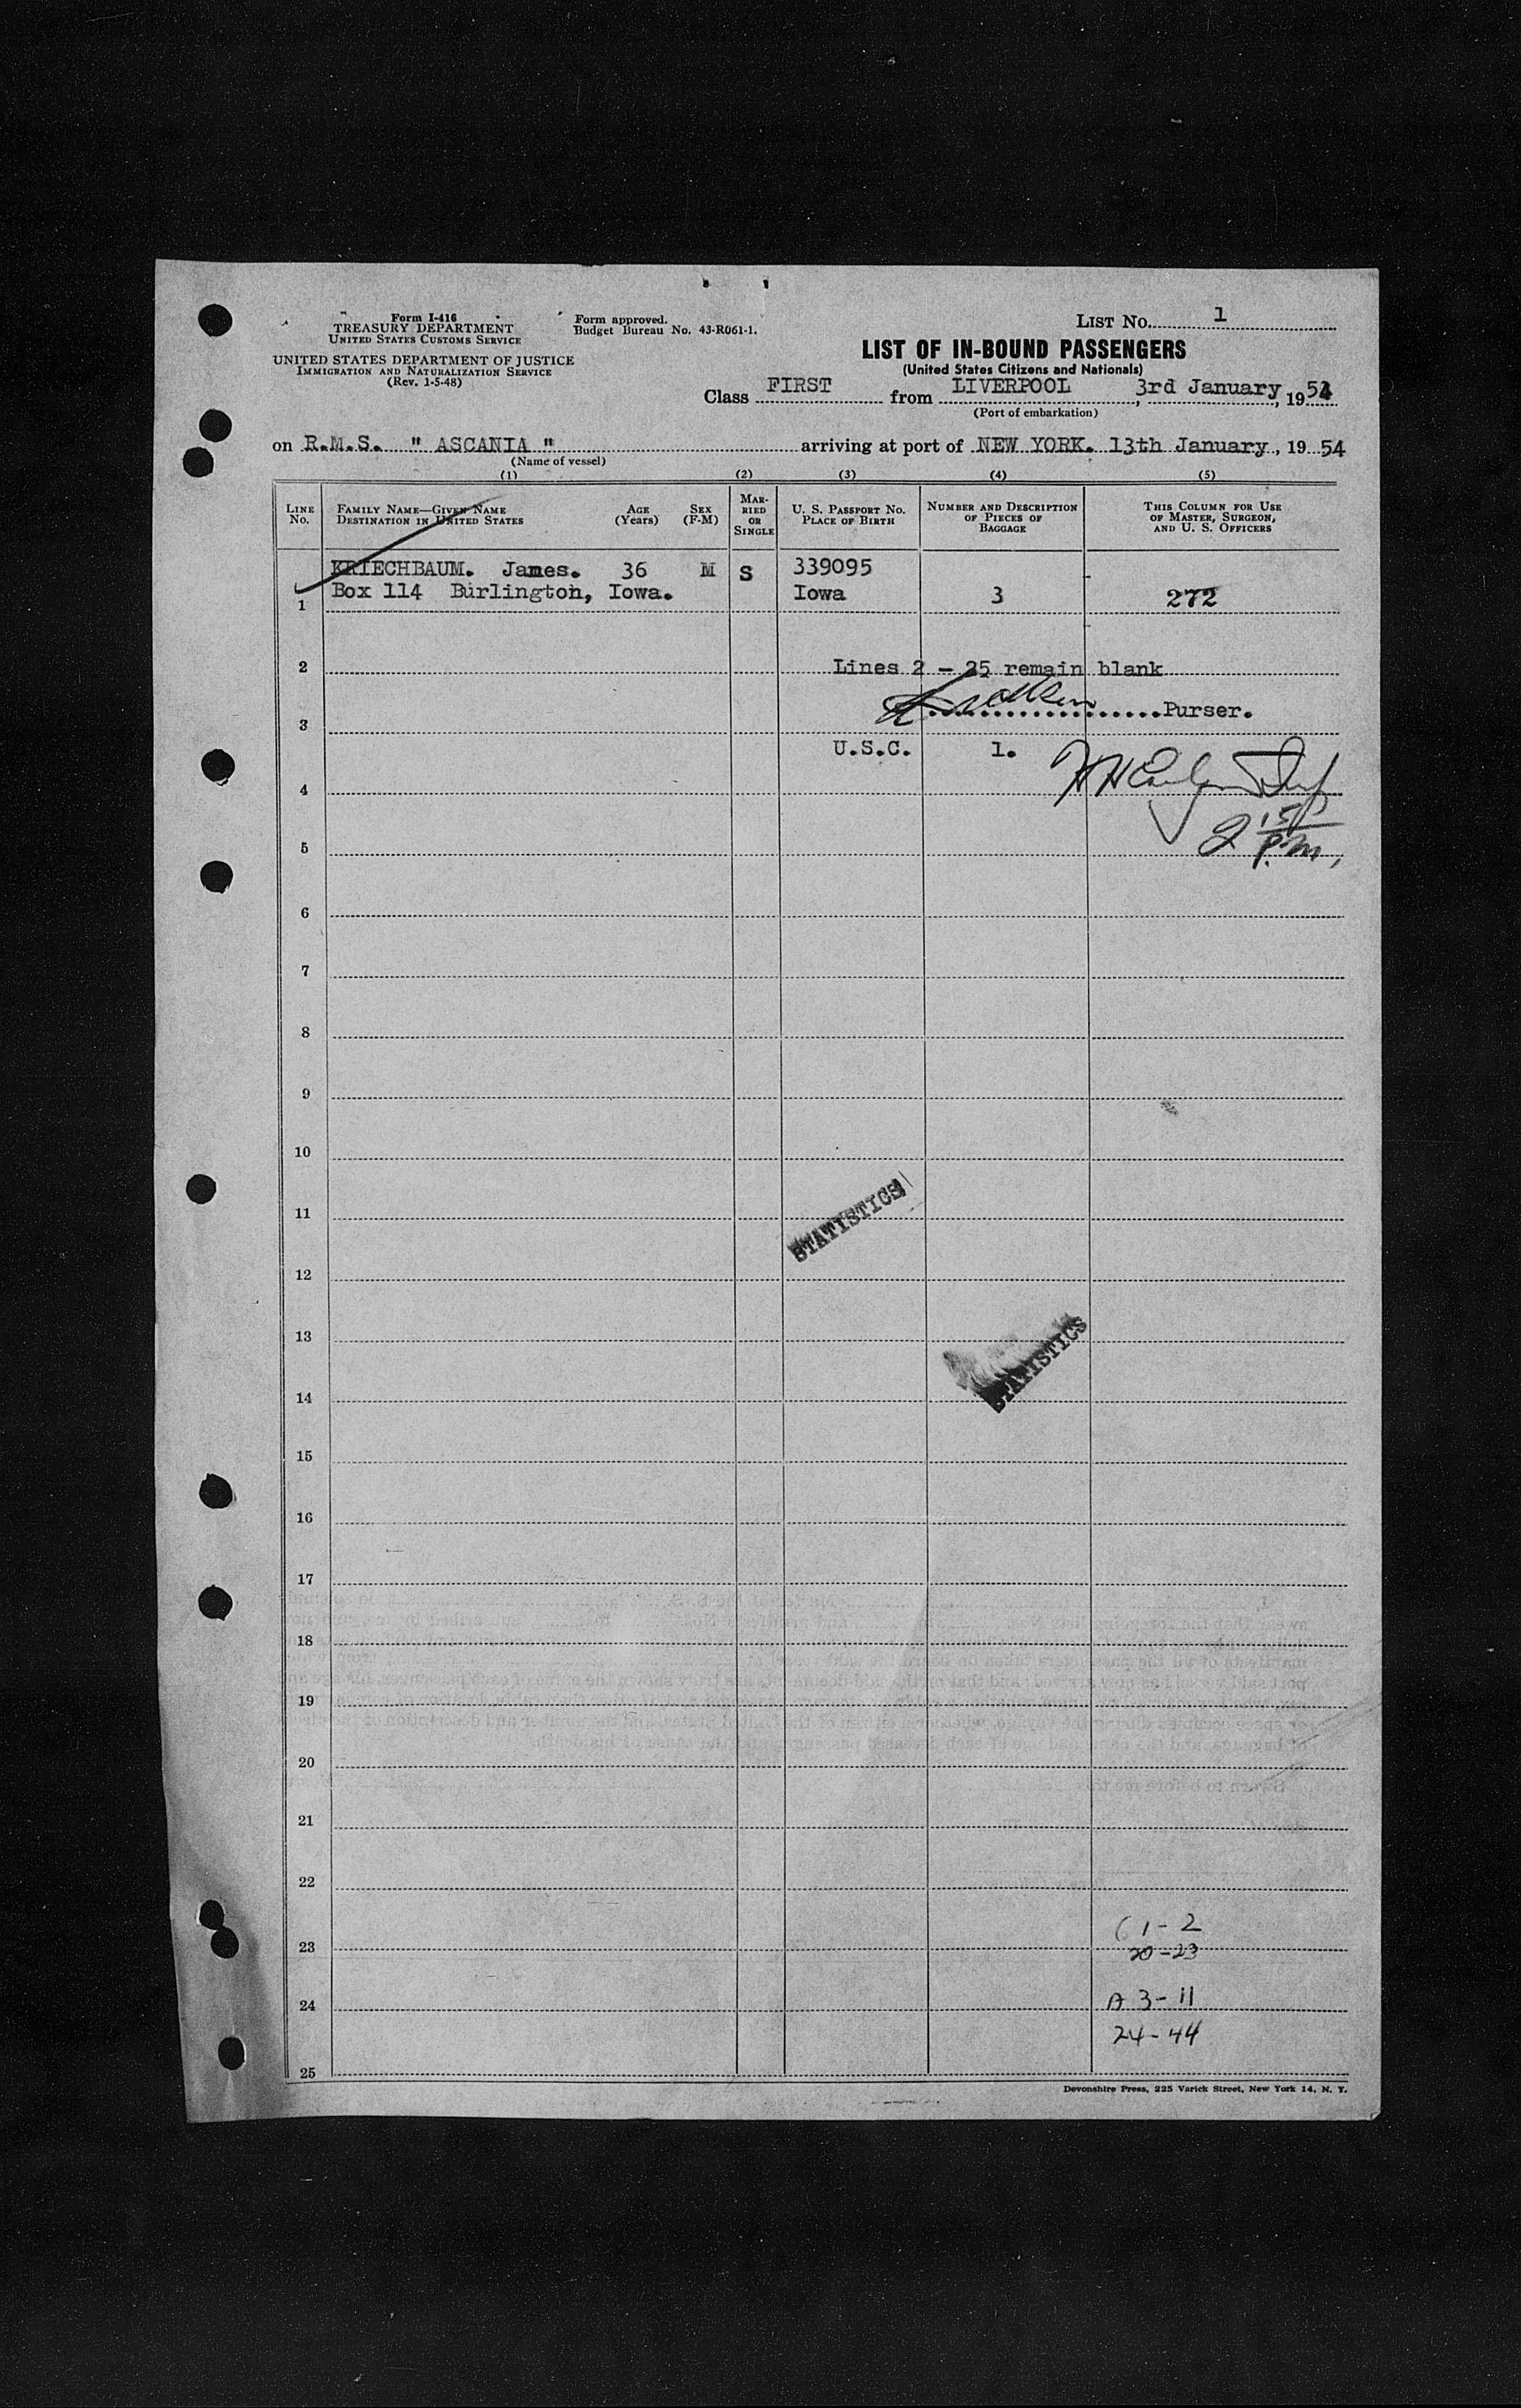 Form I-416
TREASURY DEPARTMENT
UNITED STATES CUSTOMS SERVICE
UNITED STATES DEPARTMENT OF JUSTICE
IMMIGRATION AND NATURALIZATION SERVICE
(Rev. 1-5-48)
Form approved.
Budget Bureau No. 43-R061-1.
LIST NO. 1
LIST OF IN-BOUND PASSENGERS
(United States Citizens and Nationals)
Class FIRST from LIVERPOOL, 3rd January, 1954
(Port of embarkation)
on R.M.S. " ASCANIA " arriving at port of NEW YORK. 13th January, 1954
(Name of vessel)
(1) (2) (3) (4) (5)
LINE NO.
FAMILY NAME—GIVEN NAME
DESTINATION IN UNITED STATES
AGE (Years)
SEX (F-M)
MARRIED OR SINGLE
U. S. PASSPORT NO.
PLACE OF BIRTH
NUMBER AND DESCRIPTION OF PIECES OF BAGGAGE
THIS COLUMN FOR USE OF MASTER, SURGEON, AND U. S. OFFICERS
KRIECHBAUM. James. 36 M S 339095
1 Box 114 Burlington, Iowa. Iowa 3 272
2 Lines 2 - 25 remain blank
3 Purser.
U.S.C. 1.
4
2 15 P.m,
5
6
7
8
9
10
11
STATISTICS
12
13
STATISTICS
14
15
16
17
18
19
20
21
22
1-2
23 20-23
24 A 3-11
24-44
25
Devonshire Press, 225 Varick Street, New York 14, N. Y.